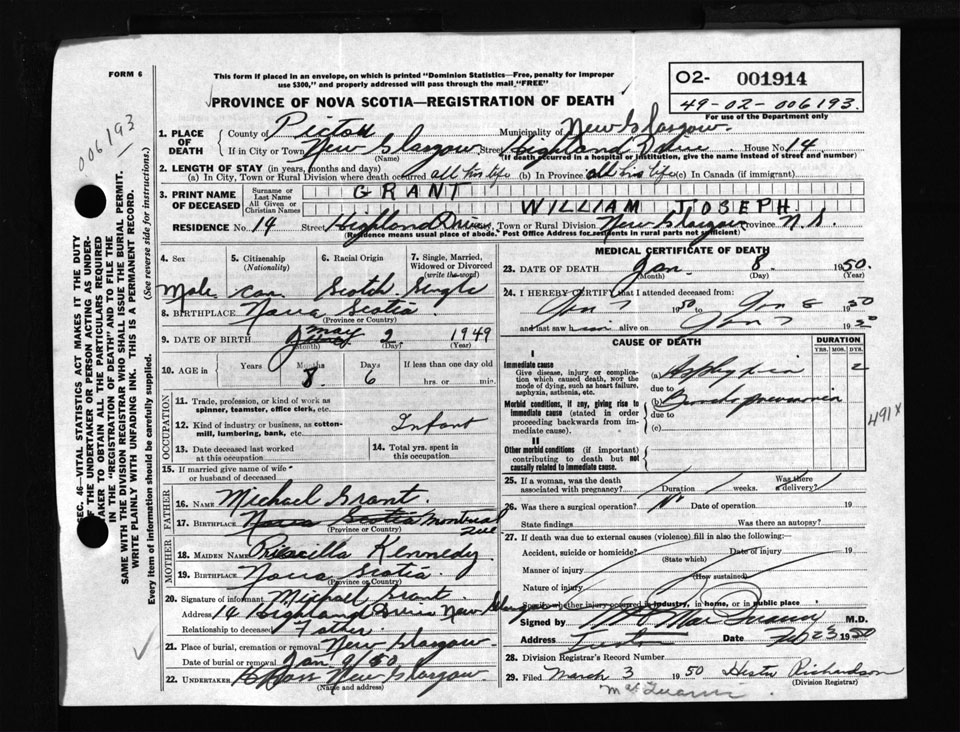 FORM 6
This form if placed in an envelope, on which is printed "Dominion Statistics—Free, penalty for improper
use $300," and properly addressed will pass through the mail "FREE"
PROVINCE OF NOVA SCOTIA—REGISTRATION OF DEATH
02- 001914
49-02-006193.
For use of the Department only
006193
1. PLACE OF DEATH
County of Pictou Municipality of New Glasgow.
If in City or Town New Glasgow Street Highland Drive House No 14.
(Name) (If death occurred in a hospital or institution, give the name instead of street and number)
2. LENGTH OF STAY (in years, months and days)
a) In City, Town or Rural Division where death occurred all his life (b) In Province all his life (c) In Canada (if immigrant)
3. PRINT NAME OF DECEASED
Surname or Last Name GRANT
All Given or Christian Names WILLIAM JOSEPH
RESIDENCE No. 14 Street Highland Drive Town or Rural Division New Glasgow Province N.S.
(Residence means usual place of abode. Post Office Address for residents in rural parts not valid)
4. Sex Male
5. Citizenship (Nationality) Can.
6. Racial Origin Scotch
7. Single, Married, Widowed or Divorced (write the word) Single
8. BIRTHPLACE Nova Scotia
(Province or Country)
9. DATE OF BIRTH May 2 1949
(Month) (Day) (Year)
10. AGE in Years Months 8. Days 6 If less than one day old hrs. or min.
OCCUPATION
11. Trade, profession, or kind of work as spinner, teamster, office clerk, etc.
12. Kind of industry or business, as cotton-mill, lumbering, bank, etc. Infant
13. Date deceased last worked at this occupation
14. Total yrs. spent in this occupation
15. If married give name of wife or husband of deceased
FATHER
16. NAME Michael Grant.
17. BIRTHPLACE Nova Scotia Montreal Que
(Province or Country)
MOTHER
18. MAIDEN NAME Priscilla Kennedy
19. BIRTHPLACE Nova Scotia
(Province or Country)
20. Signature of informant Michael Grant.
Address 14 Highland Drive New Glasgow
Relationship to deceased Father.
21. Place of burial, cremation or removal New Glasgow
Date of burial or removal Jan 9/50
22. UNDERTAKER New Glasgow.
(Name and address)
MEDICAL CERTIFICATE OF DEATH
23. DATE OF DEATH Jan. 8. 1950.
(Month) (Day) (Year)
24. I HEREBY CERTIFY that I attended deceased from
Jan 7 1950 to Jan 8 1950
and last saw him alive on Jan 7 1950
CAUSE OF DEATH
DURATION
YRS. MOS. DYS.
I
Immediate cause
Give disease, injury or complication which caused death, NOT the mode of dying, such as heart failure, asphyxia, asthenia, etc.
(a) Asphyxia 2
due to
Morbid conditions, if any, giving rise to immediate cause (stated in order proceeding backwards from immediate cause).
(b) Bronchopneumonia
due to
(c)
491X
II
Other morbid conditions (if important) contributing to death but not causally related to immediate cause.
25. If a woman, was the death associated with pregnancy? Duration weeks. Was there a delivery?
26. Was there a surgical operation? No Date of operation 19
State findings Was there an autopsy?
27. If death was due to external causes (violence) fill in also the following:
Accident, suicide or homicide? Date of injury 19
(State which)
Manner of injury
(How sustained)
Nature of injury
Specify whether injury occurred in industry, in home, or in public place
Signed by M.D.
Address Date Feb 23 1950
28. Division Registrar's Record Number
29. Filed March 3 1950 Hester Richardson
(Division Registrar)
SEC. 46—VITAL STATISTICS ACT MAKES IT THE DUTY
OF THE UNDERTAKER OR PERSON ACTING AS UNDERTAKER TO OBTAIN ALL THE PARTICULARS REQUIRED
IN THE "REGISTRATION OF DEATH" AND TO FILE THE
SAME WITH THE DIVISION REGISTRAR WHO SHALL ISSUE THE BURIAL PERMIT.
WRITE PLAINLY WITH UNFADING INK. THIS IS A PERMANENT RECORD.
Every item of information should be carefully supplied. (See reverse side for instructions.)